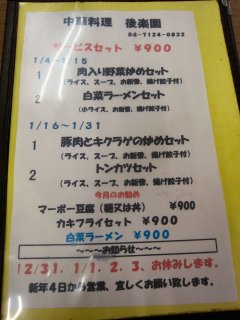 中華料理 後楽園
04-7124-0832
サービスセット ￥900
1/4～1/15
1 肉入り野菜炒めセット
(ライス、スープ、お新香、揚げ餃子付)
2 白菜ラーメンセット
(小ライス、お新香、揚げ餃子付)
1/16～1/31
1 豚肉とキクラゲの炒めセット
(ライス、スープ、お新香、揚げ餃子付)
2 トンカツセット
(ライス、スープ、お新香、揚げ餃子付)
今月のお勧め
マーボー豆腐（麺又は丼） ￥900
カキフライセット ￥900
白菜ラーメン ￥900
～～～お知らせ～～～
12/31、1/1、2、3、お休みします。
新年4日から営業、宜しくお願い致します。